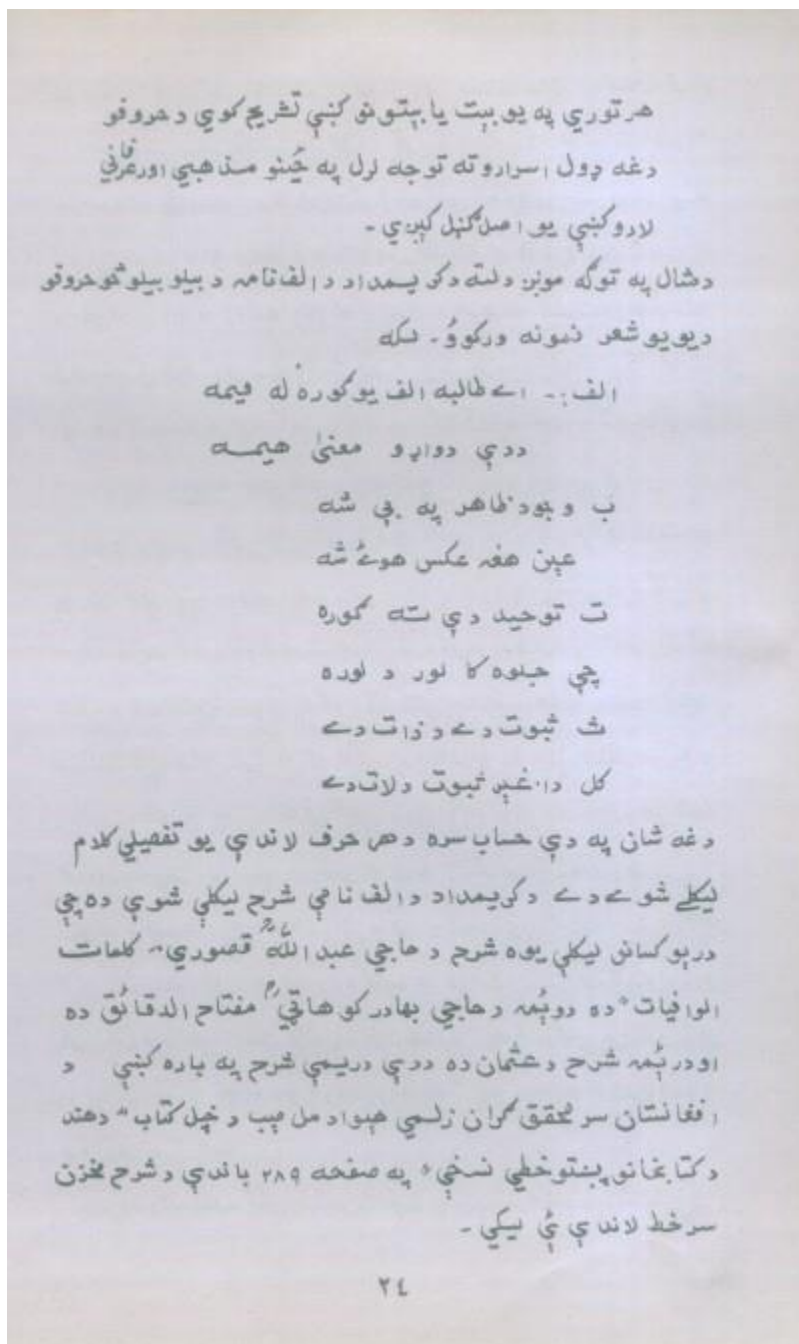 هر توري په يو بيت يا بيتونو کښې تشريح کوي د حروفو
دغه ډول اسرارو ته توجه لرل په ځينو مذهبي اور عرفاني
لارو کښې يو اصل ګڼل کيږي ـ
د مثال په توګه مونږ دلته د کريمداد د الف نامه د بيلو بيلو څو حروفو
د يو يو شعر نمونه ورکوؤ ـ لکه
الف :ـ اے طالبه الف يو ګوره له ميمه
د دې دواړو معنیٰ هيمه
ب وجود ظاهر په بې شه
عين هغه عکس هوئے شه
ت توحيد دې ته ګوره
چې جلوه کا نور د لوره
ث ثبوت دے د ذات دے
کل داغير ثبوت د لات دے
دغه شان په دې حساب سره د هر حرف لاندې يو تفصيلي کلام
ليکلے شوے دے د کريمداد د الف نامې شرح ليکلې شوې ده چې
دريو کسانو ليکلې يوه شرح د حاجي عبداللهؒ قصوري " کلمات
الوافيات " ده دوئمه د حاجي بهادر کوهاټيؒ مفتاح الدقائق ده
او درئمه شرح د عثمان ده د دې دريمې شرح په باره کښې د
افغانستان سر محقق ګران زلمي هېوادمل هېب د خپل کتاب " د هند
د کتابخانو پښتو خطي نسخې " په صفحه ۲۸۹ باندې د شرح مخزن
سر خط لاندې ئې ليکي ـ
۲٤